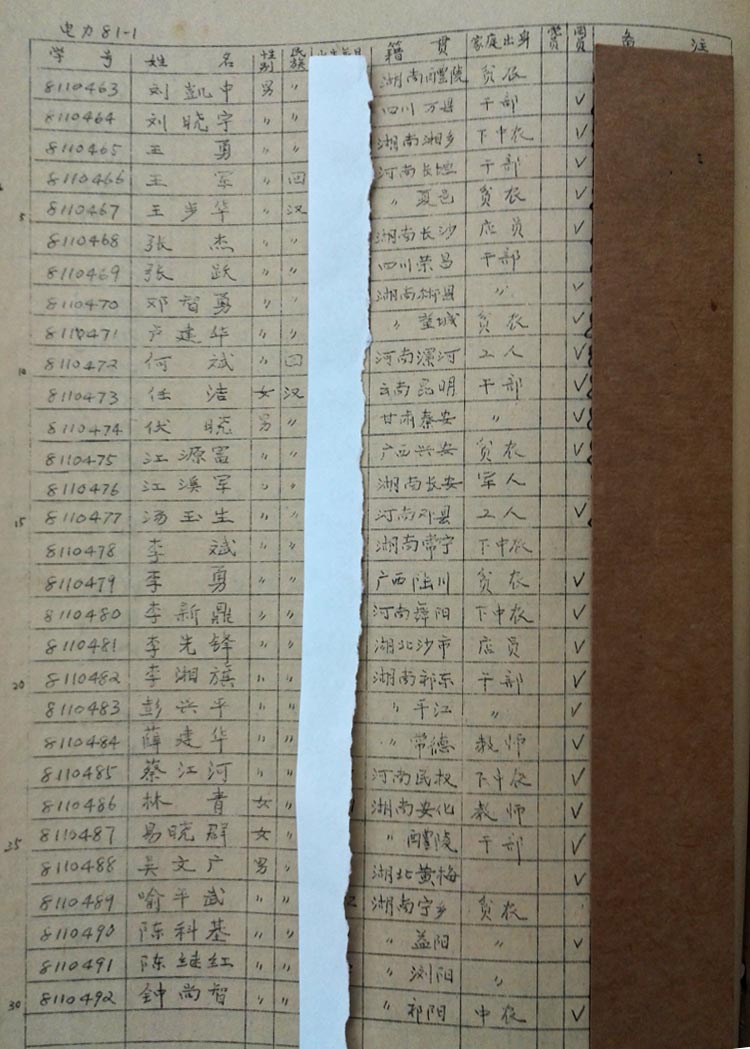 电力81-1
学号 姓名 性别 民族 籍贯 家庭出身 党员 团员 备注
8110463 刘凯中 男 〃 湖南醴陵 贫农
8110464 刘晓宇 〃 〃 四川万县 干部 ✓
8110465 王勇 〃 〃 湖南湘乡 下中农 ✓
8110466 王军 〃 回 河南长垣 干部 ✓
5 8110467 王步华 〃 汉 〃 夏邑 贫农 ✓
8110468 张杰 〃 〃 湖南长沙 店员 ✓
8110469 张跃 〃 〃 四川荣昌 干部
8110470 邓智勇 〃 〃 湖南郴县 〃 ✓
8110471 卢建华 〃 〃 〃 望城 贫农 ✓
10 8110472 何斌 〃 回 河南漯河 工人 ✓
8110473 任洁 女 汉 云南昆明 干部 ✓
8110474 伏晓 男 〃 甘肃秦安 〃 ✓
8110475 江源富 〃 〃 广西兴安 贫农 ✓
8110476 江溪军 〃 〃 湖南长安 军人
15 8110477 汤玉生 〃 〃 河南邓县 工人 ✓
8110478 李斌 〃 〃 湖南常宁 下中农
8110479 李勇 〃 〃 广西陆川 贫农 ✓
8110480 李新鼎 〃 〃 河南舞阳 下中农 ✓
8110481 李先锋 〃 〃 湖北沙市 店员 ✓
20 8110482 李湘旗 〃 〃 湖南祁东 干部 ✓
8110483 彭兴平 〃 〃 〃 平江 〃 ✓
8110484 薛建华 〃 〃 〃 常德 教师 ✓
8110485 蔡江河 〃 〃 河南民权 下中农 ✓
8110486 林青 女 〃 湖南安化 教师 ✓
25 8110487 易晓群 女 〃 〃 醴陵 干部 ✓
8110488 吴文广 男 〃 湖北黄梅 ✓
8110489 喻平武 〃 〃 湖南宁乡 贫农
8110490 陈科基 〃 〃 〃 益阳 〃 ✓
8110491 陈继红 〃 〃 〃 浏阳 〃
30 8110492 钟尚智 〃 〃 〃 祁阳 中农 ✓